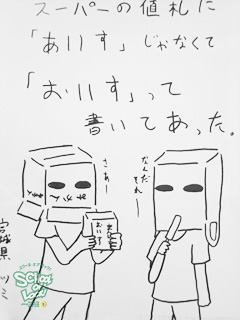 スーパーの値札に
「あいす」じゃなくて
「おいす」って
書いてあった。
さぁー
なんだ
それー
おいす
宮城県 ツミ
SCHOOL
LOCK!